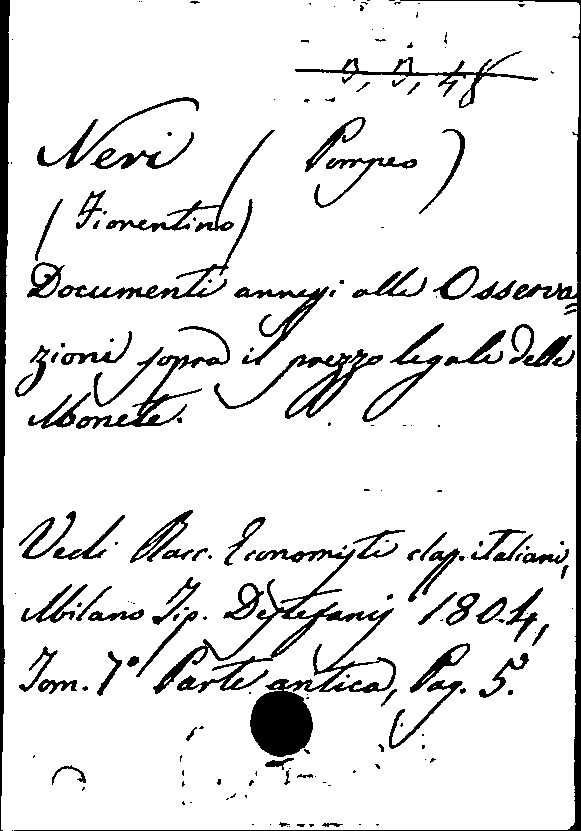 B, B, 48
Neri ( Pompeo )
( Fiorentino )
Documenti annessi alle Osserva=
zioni sopra il prezzo legale delle
Monete.
Vedi Racc. Economisti clas. italiani,
Milano Tip. Destefanis 1804,
Tom. 7° Parte antica, Pag. 5.